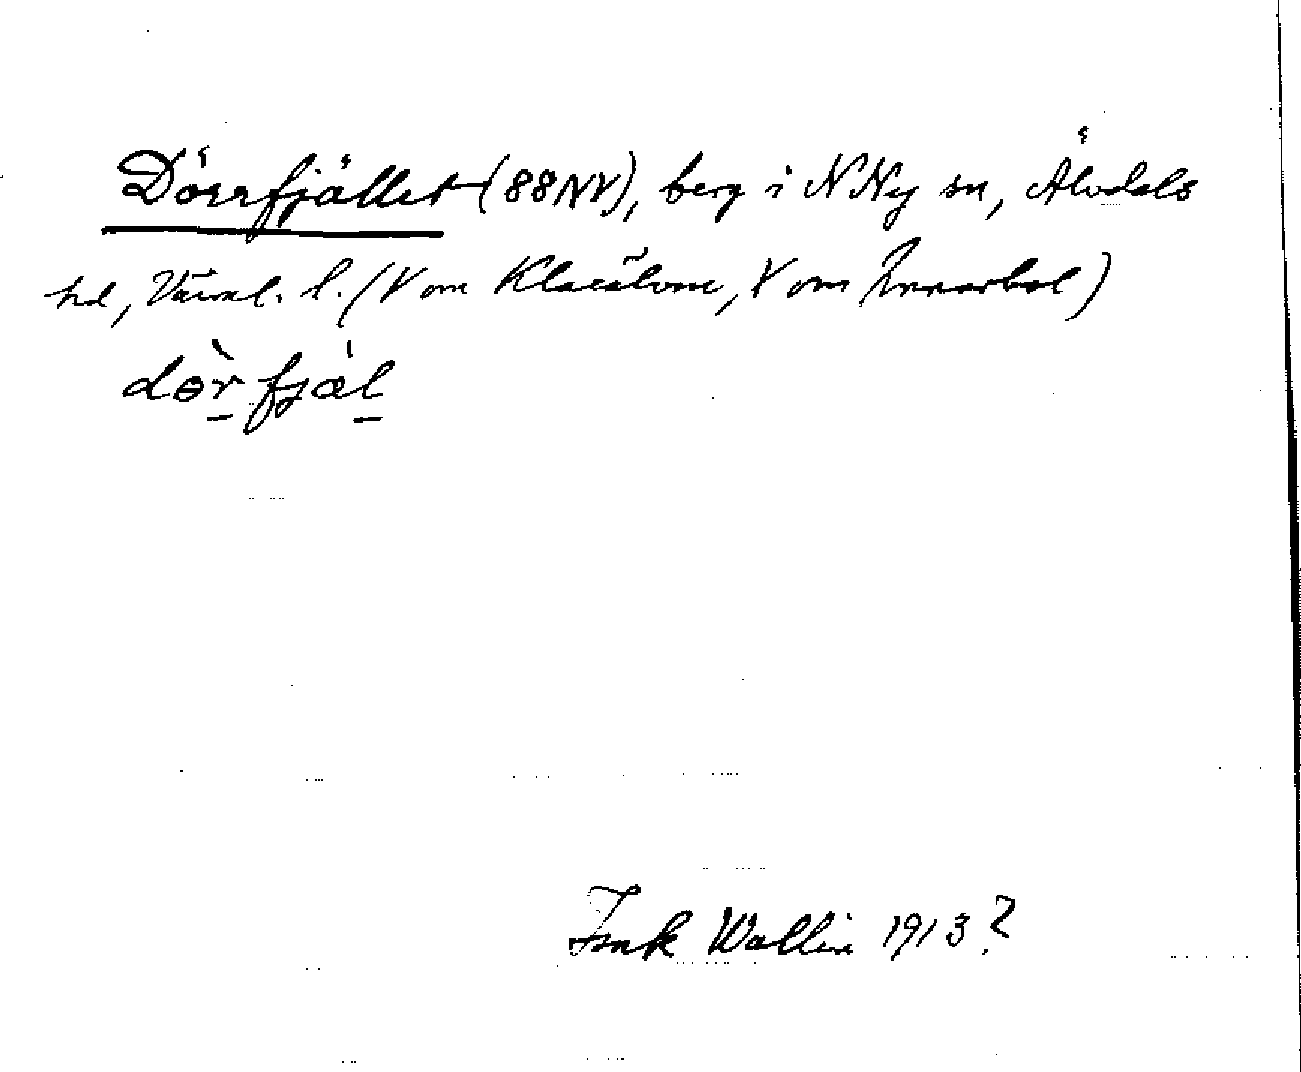 Dörrfjället (88NV), berg i N Ny sn, Älvdals
hd, Värml. l. (V om Klarälven, V om
dör fjäl
Wallin 1913?